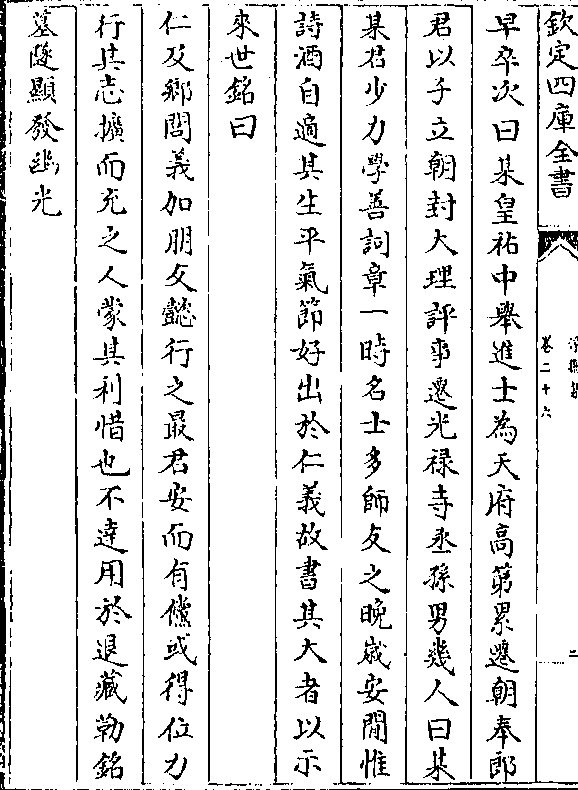 欽定四庫全書
卷二十六
二
早卒次曰某皇祐中舉進士為天府高第累遷朝奉郎
君以子立朝封大理評事遷光禄寺丞孫男幾人曰某
某君少力學善詞章一時名士多師友之晚嵗安閒惟
詩酒自適其生平氣節好出於仁義故書其大者以示
來世銘曰
仁及鄉閭義加朋友懿行之最君安而有儻或得位力
行其志擴而充之人蒙其利惜也不逹用於退藏勒銘
墓隧顯發幽光